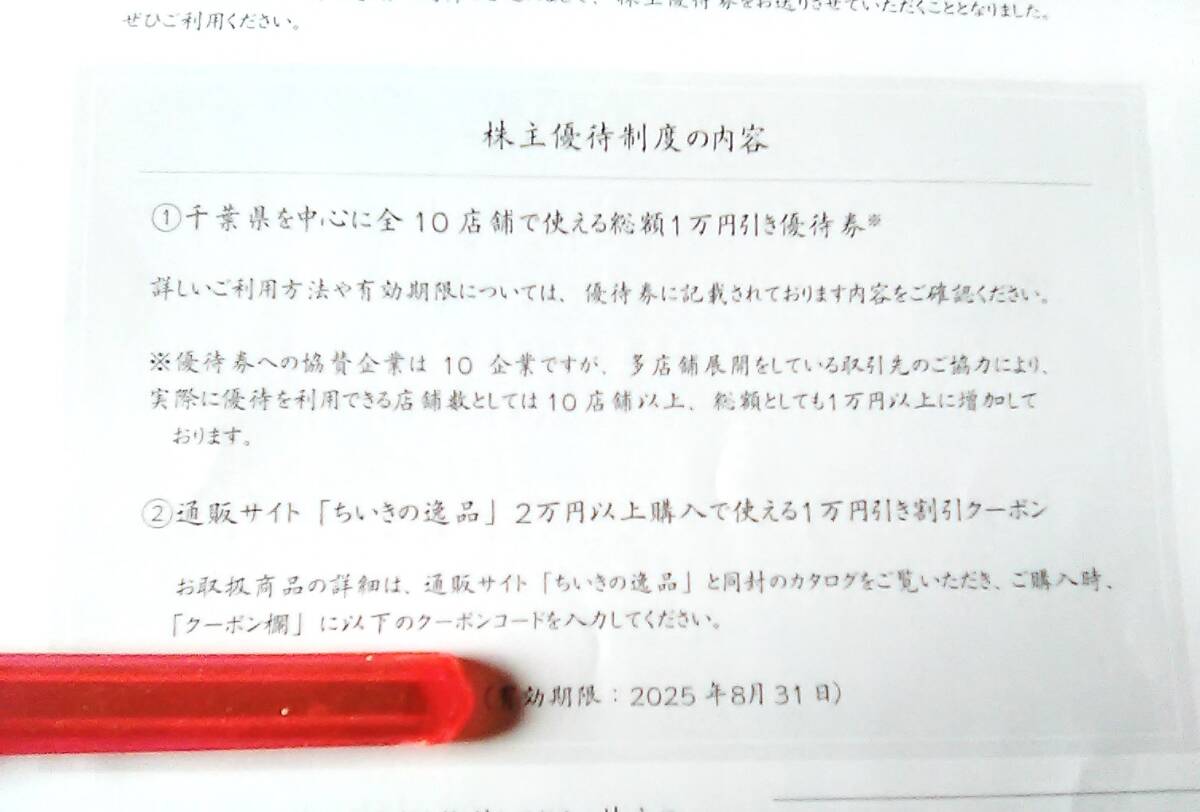 株主優待券をお送りさせていただくこととなりました。
ぜひご利用ください。
株主優待制度の内容
①千葉県を中心に全10店舗で使える総額1万円引き優待券※
詳しいご利用方法や有効期限については、優待券に記載されております内容をご確認ください。
※優待券への協賛企業は10企業ですが、多店舗展開をしている取引先のご協力により、
実際に優待を利用できる店舗数としては10店舗以上、総額としても1万円以上に増加して
おります。
②通販サイト「ちいきの逸品」2万円以上購入で使える1万円引き割引クーポン
お取扱商品の詳細は、通販サイト「ちいきの逸品」と同封のカタログをご覧いただき、ご購入時、
「クーポン欄」に以下のクーポンコードを入力してください。
(有効期限：2025年8月31日)